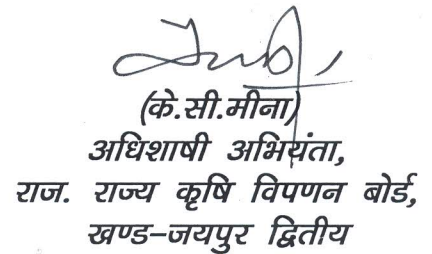 (के.सी.मीना)
अधिशाषी अभियंता,
राज. राज्य कृषि विपणन बोर्ड,
खण्ड-जयपुर द्वितीय